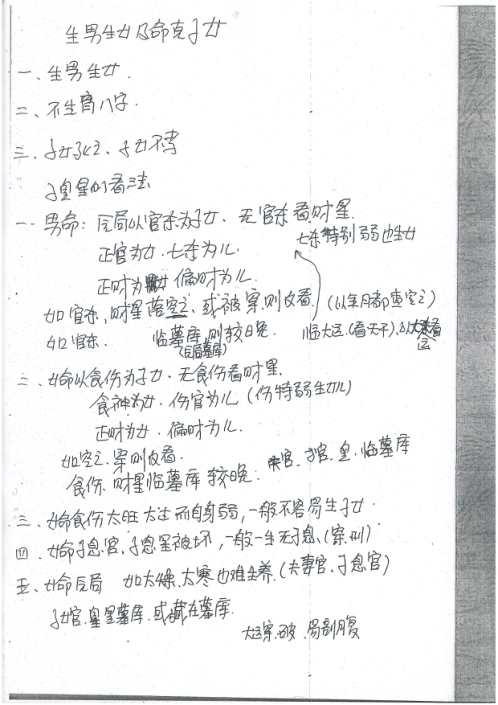 生男生女及命克子女
一、生男生女.
二、不生育八字.
三、子女死亡、子女不孝
子息星的看法
一、男命：原局以官杀为子女、无官杀看财星.
七杀特别弱也生女
正官为女.七杀为儿.
正财为女 偏财为儿.
如官杀,财星落空亡,或被穿.则没看 (以年月都查空亡)
如官杀. 临墓库,则较晚. 临大运(看天干).
(原局墓库)
二、女命以食伤为子女.无食伤看财星.
食神为女.伤官为儿(伤特弱生女儿)
正财为女.偏财为儿.
如空亡.穿则没看.
食伤.财星临墓库较晚. 官.子宫.星.临墓库
三、女命食伤太旺太过而自身弱,一般不容易生子女.
四、女命子息宫,子息星被坏,一般一生无子息,(穿刑)
五、女命原局 如太燥.太寒也难生养.(夫妻宫.子息宫)
子女宫.星墓库.或藏在墓库.
大运穿.破.易剖腹